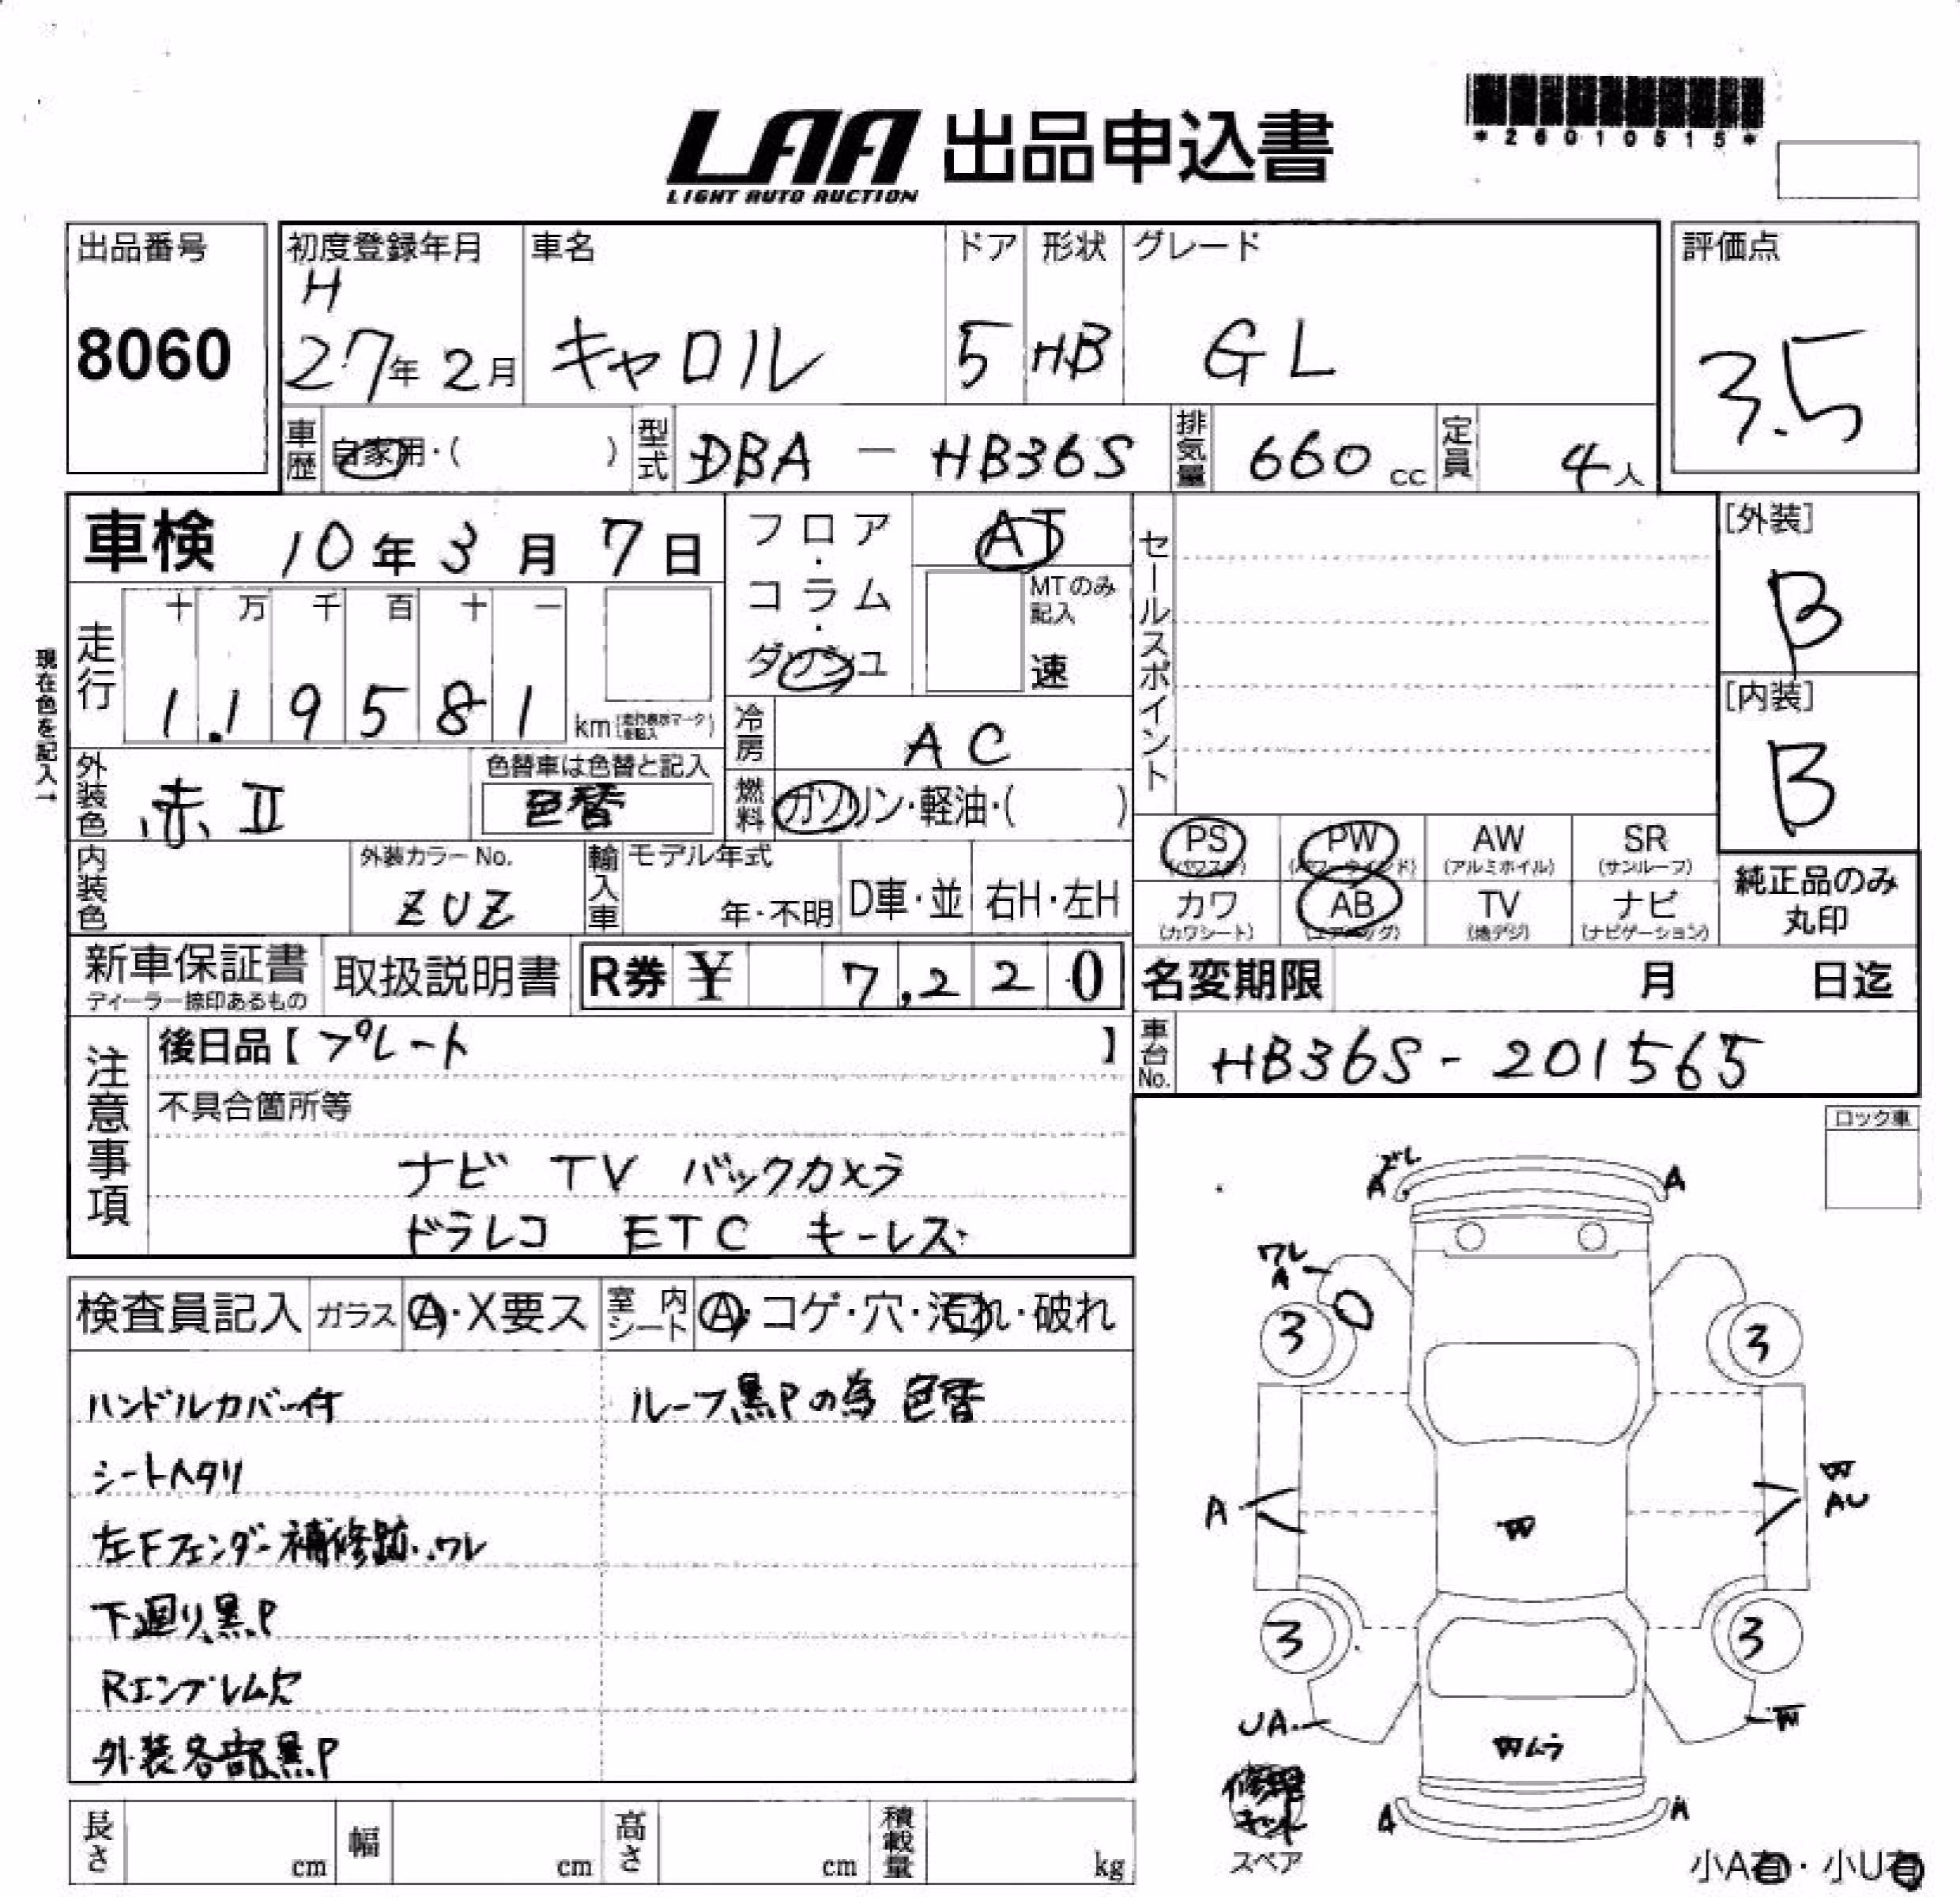 LAA 出品申込書
LIGHT AUTO AUCTION
*26010515*
出品番号
8060
初度登録年月
H
27年 2月
車名
キャロル
ドア
5
形状
HB
グレード
GL
評価点
3.5
車歴
自家用・( )
型式
DBA - HB36S
排気量
660 cc
定員
4人
車検 10年 3月 7日
フロア・コラム・ダッシュ
AT
MTのみ記入
速
セールスポイント
[外装]
B
[内装]
B
現在色を記入→
走行
十 万 千 百 十 一
1.19581 km
冷房
AC
外装色
赤II
色替車は色替と記入
色替
燃料
ガソリン・軽油・( )
PS (パワステ)
PW (パワーウインド)
AW (アルミホイル)
SR (サンルーフ)
カワ (カワシート)
AB (エアバッグ)
TV (地デジ)
ナビ (ナビゲーション)
純正品のみ
丸印
内装色
外装カラーNo.
ZUZ
輸入車
モデル年式
年・不明
D車・並
右H・左H
新車保証書
ディーラー捺印あるもの
取扱説明書
R券 ¥ 7,220
名変期限 月 日迄
注意事項
後日品【プレート】
不具合箇所等
ナビ TV バックカメラ
ドラレコ ETC キーレス
車台No.
HB36S-201565
ロック車
検査員記入
ガラス
A・X要ス
室内シート
A・コゲ・穴・汚れ・破れ
ハンドルカバー付
ルーフ黒Pの為 色替
シートヘタリ
左Fフェンダー補修跡.ワレ
下廻り黒P
Rエンブレム欠
外装各部黒P
ズレ
A
A
ワレ
A
3
3
A
AU
3
3
UA
ムラ
A
A
修理
キット
スペア
小A有・小U有
長さ cm
幅 cm
高さ cm
積載量 kg